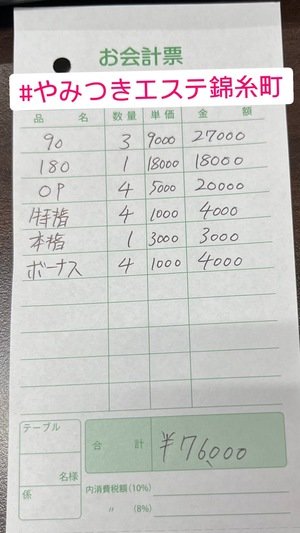 お会計票
#やみつきエステ錦糸町
品名 数量 単価 金額
90 3 9000 27000
180 1 18000 18000
OP 4 5000 20000
特指 4 1000 4000
本指 1 3000 3000
ボーナス 4 1000 4000
テーブル
名様
係
合計 ¥76,000
内消費税額(10%)
〃 (8%)